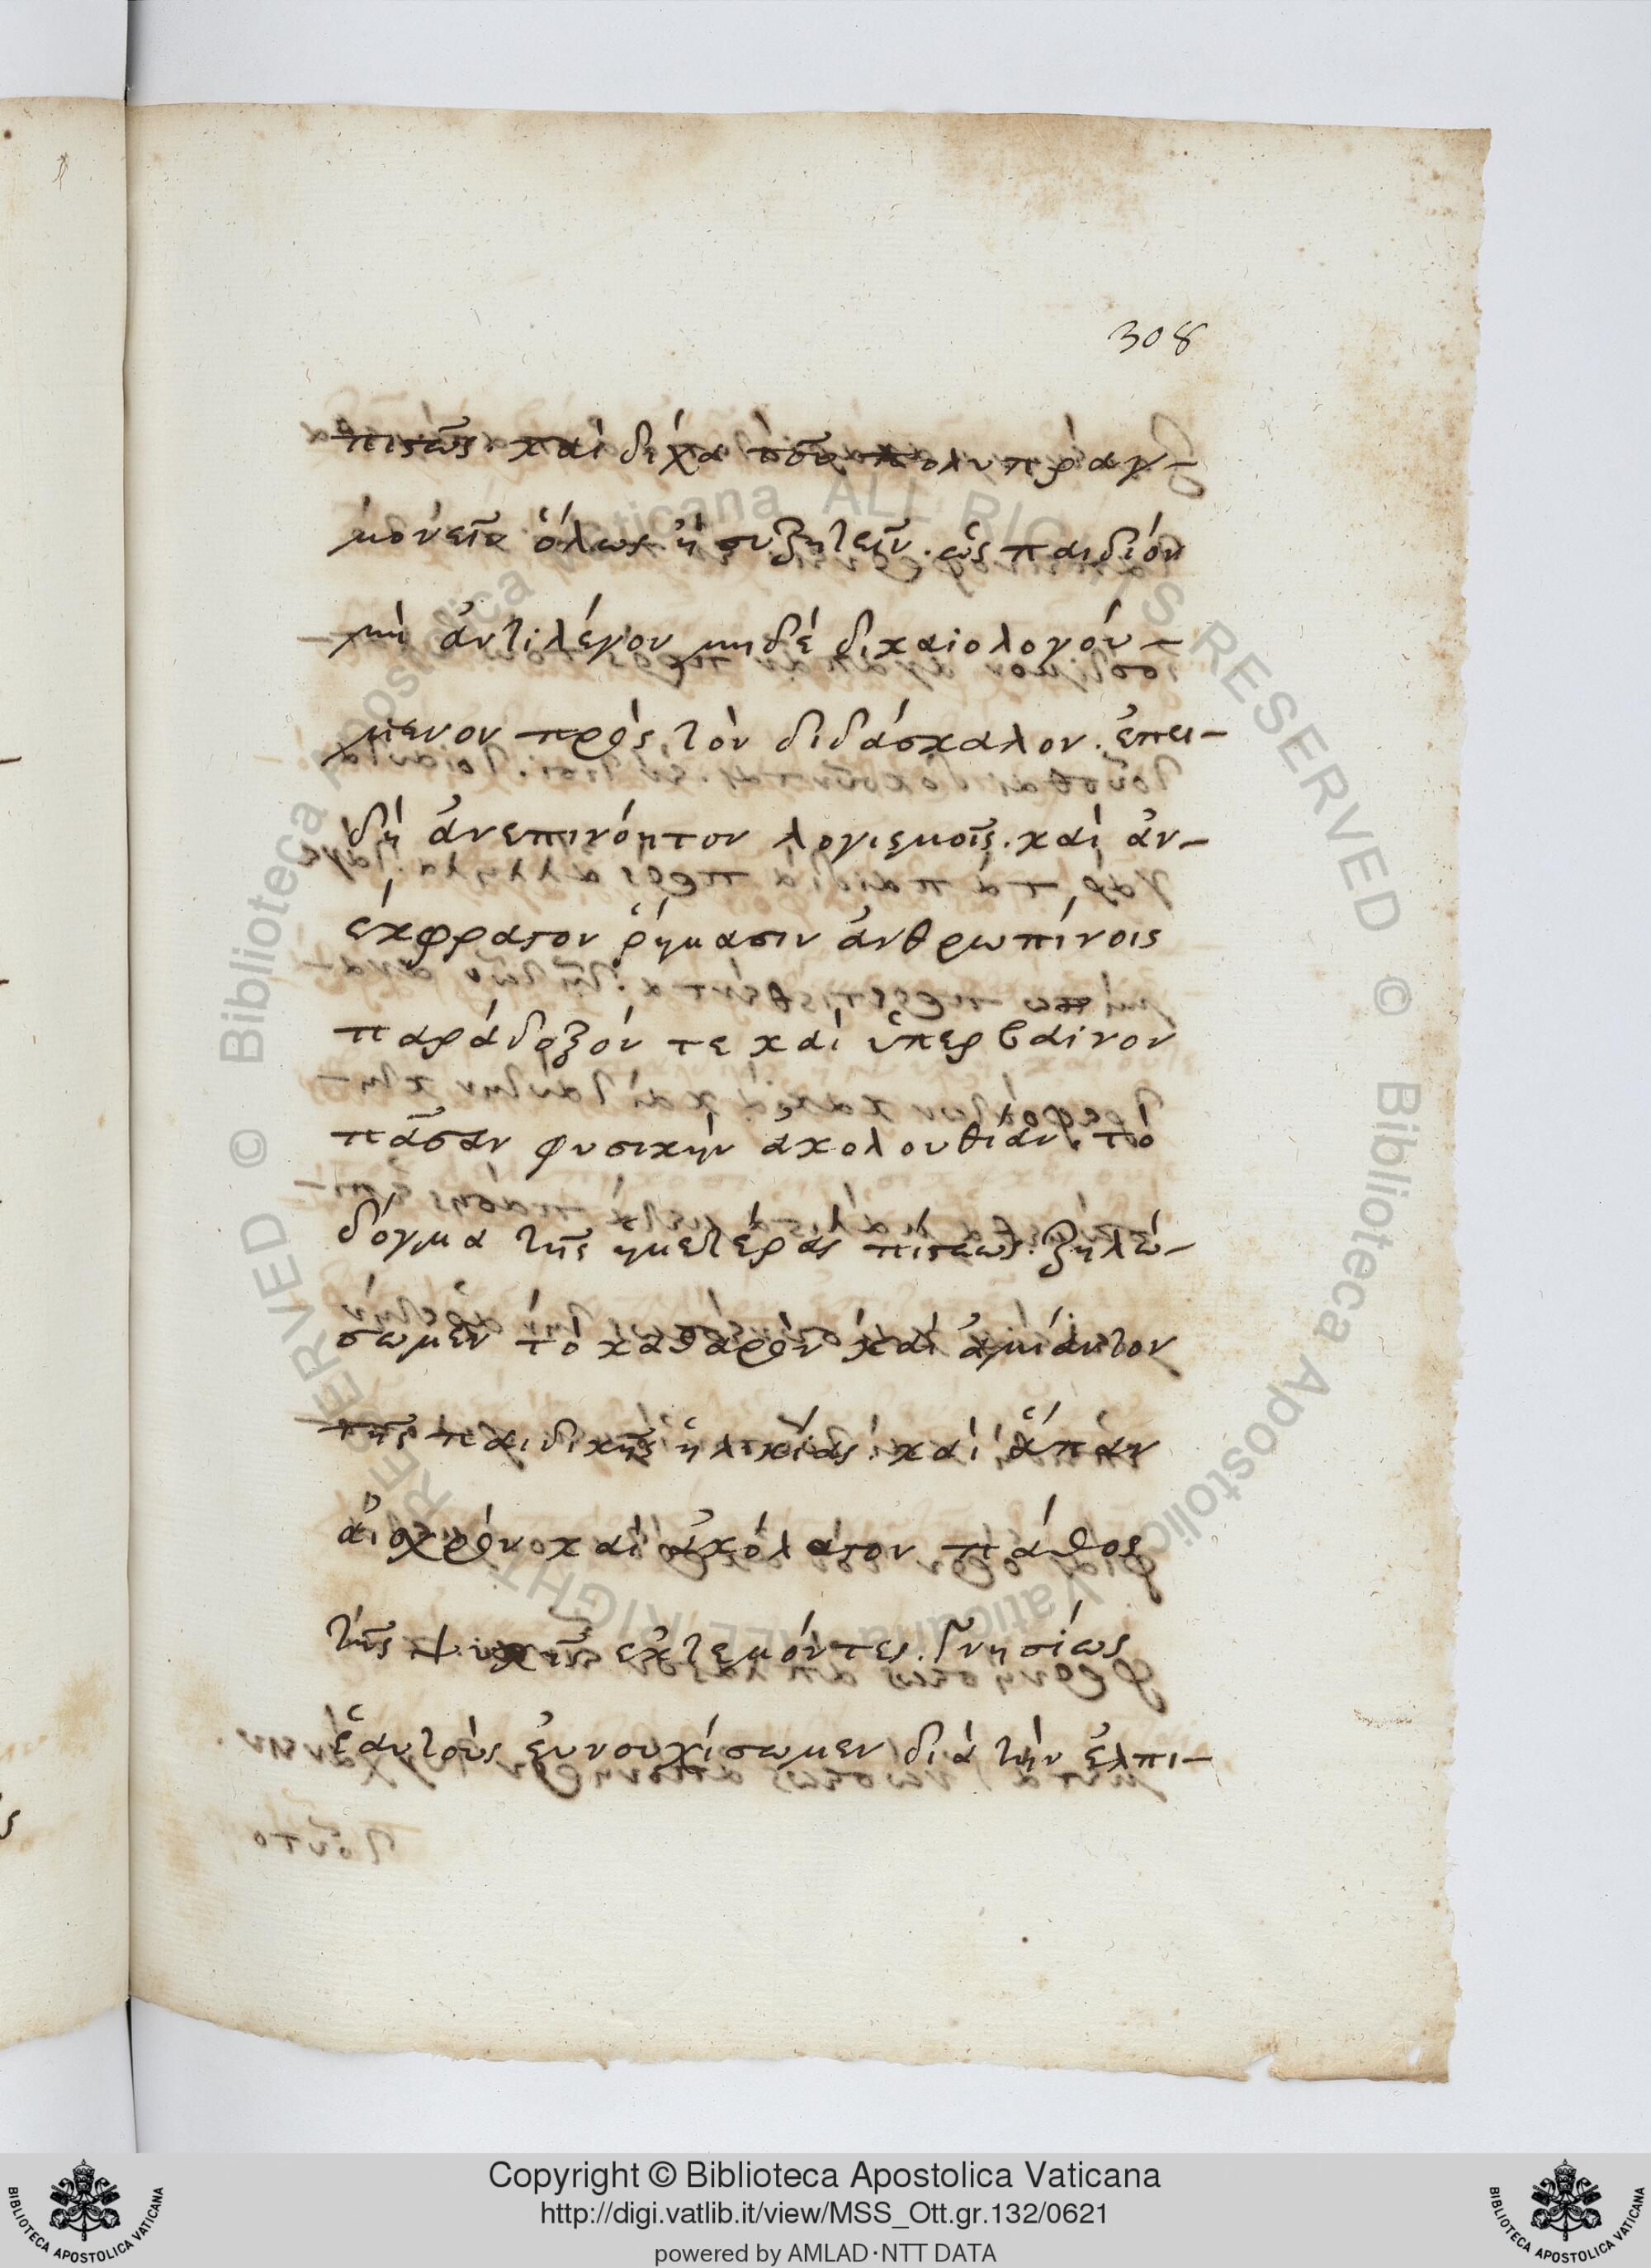 308
πιστῶς καὶ δίχα τοῦ πολυπραγ-
μονεῖν ὅλως ἢ συζητεῖν. ὡς παιδίον
μὴ ἀντιλέγον μηδὲ δικαιολογόυ-
μενον πρὸς τὸν διδάσκαλον. ἐπει-
δὴ ἀνεπινόητον λογισμοῖς. καὶ ἀν-
έκφραστον ῥήμασιν ἀνθρωπίνοις
παράδοξόν τε καὶ ὑπερβαίνον
πᾶσαν φυσικὴν ἀκολουθίαν, τὸ
δόγμα τῆς ημετέρας πίστεως. ζηλώ-
σωμεν τὸ καθαρὸν καὶ ἀμίαντον
τῆς παιδικῆς ἡλικίας. καὶ ἅπαν
αἰσχρὸν καὶ ἀκόλαστον πάθος
τῆς ψυχῆς ἐκτεμόντες. Γνησίως
ἑαυτοὺς ἐυνουχίσωμεν διὰ τὴν ἐλπι-
Copyright © Biblioteca Apostolica Vaticana
http://digi.vatlib.it/view/MSS_Ott.gr.132/0621
powered by AMLAD·NTT DATA
BIBLIOTECA APOSTOLICA VATICANA
BIBLIOTECA APOSTOLICA VATICANA
© Biblioteca Apostolica Vaticana ALL RIGHTS RESERVED
© Biblioteca Apostolica Vaticana ALL RIGHTS RESERVED